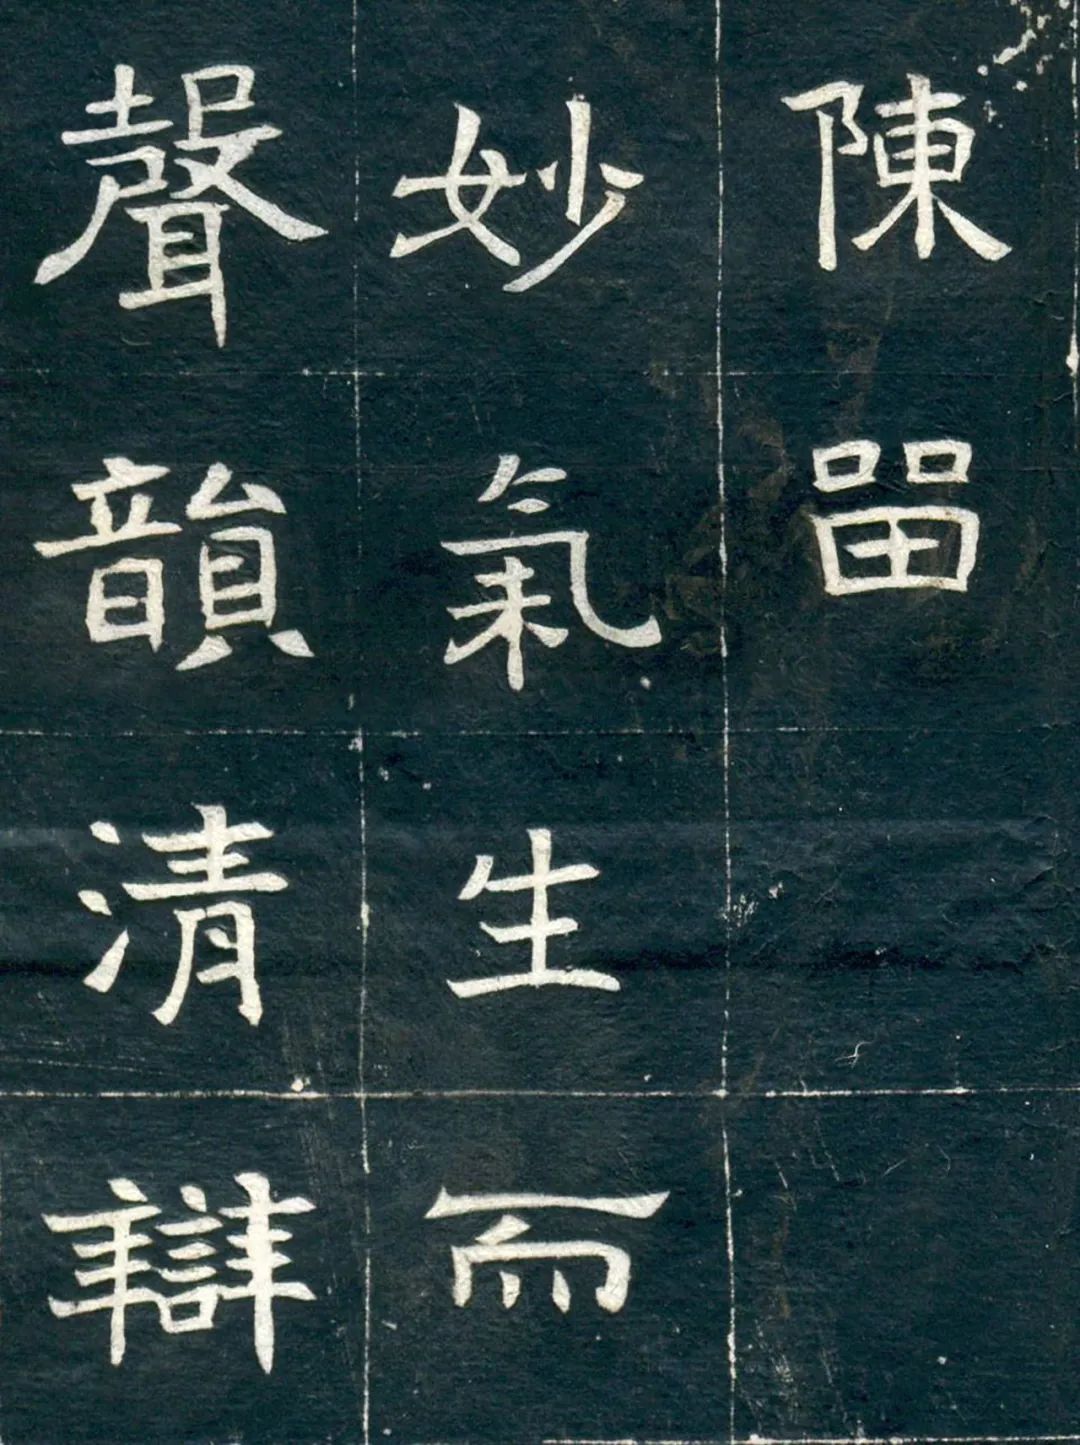 陳留
妙氣生而
聲韻清辯